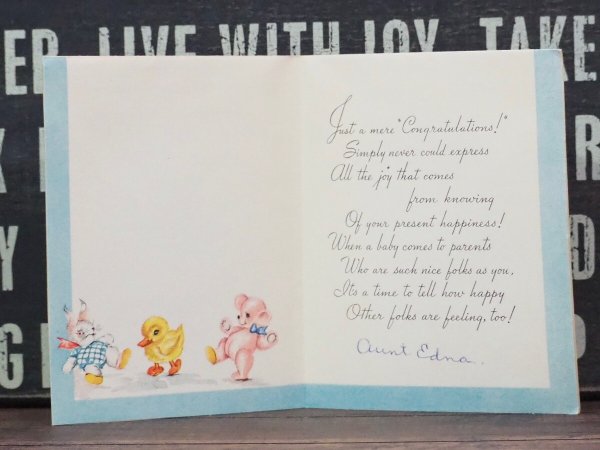 ER LIVE WITH JOY TAKE
Just a mere "Congratulations!"
Simply never could express
All the joy that comes
from knowing
Of your present happiness!
When a baby comes to parents
Who are such nice folks as you,
It's a time to tell how happy
Other folks are feeling, too!
Aunt Edna.